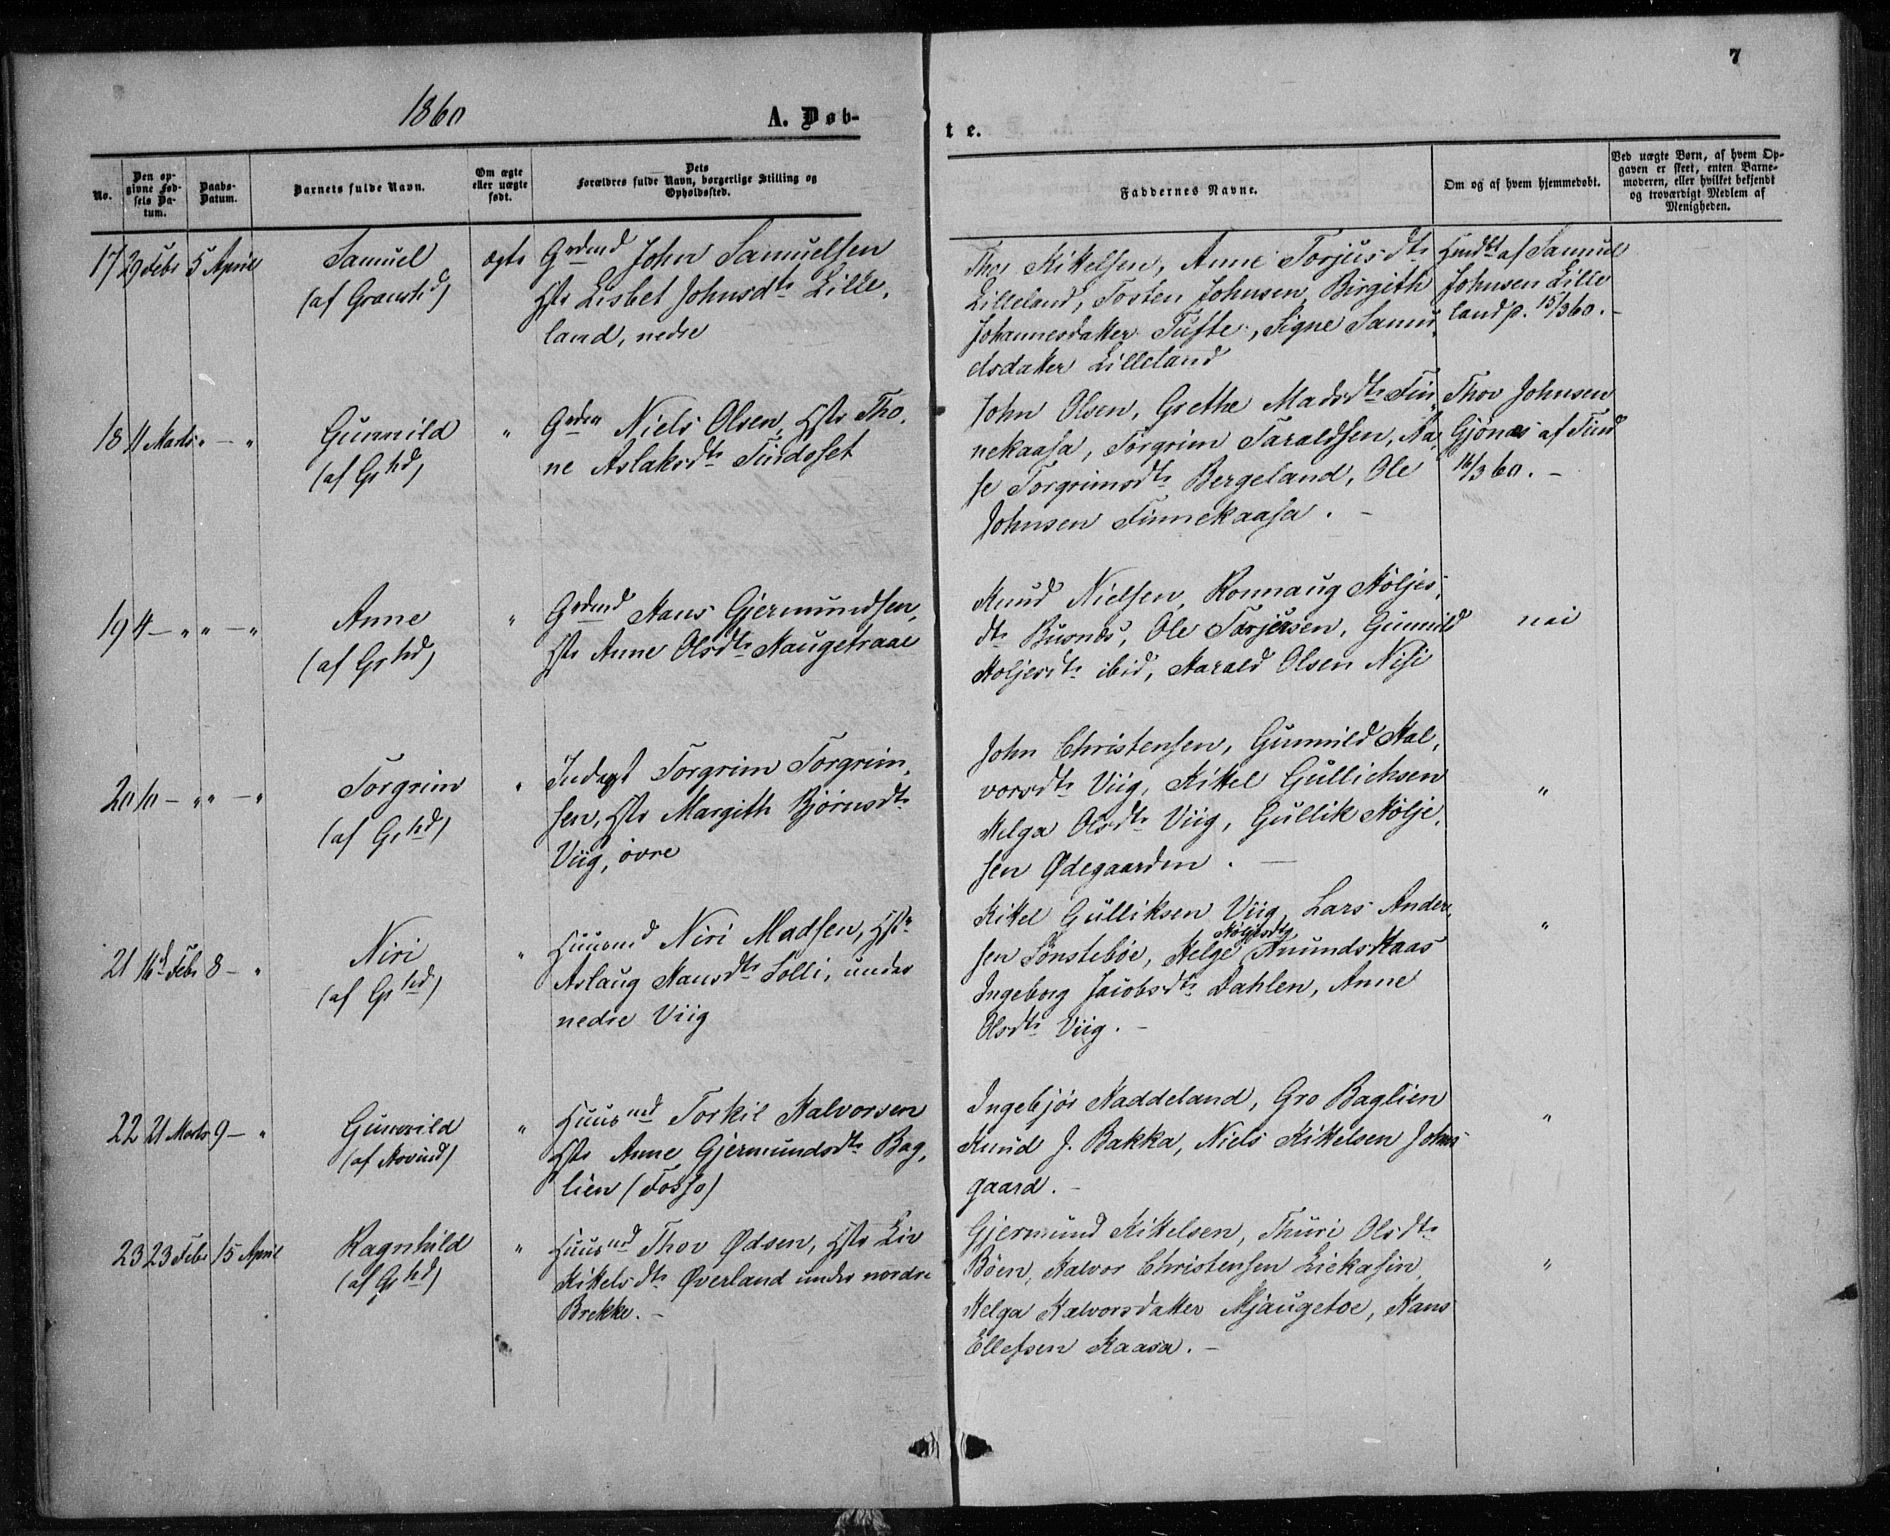 1860
A. Døb-
t e.
7
No.
Den op-
givne Fød-
sels Da-
tum.
Daabs-
Datum.
Barnets fulde Navn.
Om ægte
eller uægte
født.
Dets
Forældres fulde Navn, borgerlige Stilling og
Opholdssted.
Faddernes Navne.
Om og af hvem hjemmedøbt.
Ved uægte Børn, af hvem Op-
gaven er skeet, enten Barne-
moderen, eller hvilket bekjendt
og troværdigt Medlem af
Menigheden.
17 29 Febr 5 April Samuel ægte
(af Granshd)
Grdmd John Samuelsen
Hstr Lisbet Johnsdtr Lille-
land, nedre
Thor Kittelsen, Anne Torjusdtr
Lilleland, Tosten Johnsen, Birgith
Johannesdatter Tufte, Signe Samu-
elsdatter Lilleland
Hmdbt af Samuel
Johnsen Lille
land p. 15/3 60. -
18 4 Marts " - " Gunnild "
(af Grhd)
Niels Olsen, Hstr Tho-
ne Aslaksdtr Tindsset
John Olsen, Grethe Madsdtr Fin-
nekaasa, Torgrim Taraldsen, Aa-
se Torgrimsdtr Bergeland, Ole
Johnsen Finnekaasa. -
Thov Johnsen
Gjönæs af Tind
16/3 60. -
19 4 - " " - " Anne "
(af Grhd)
Grdmd Hans Gjermundsen,
Hstr Anne Olsdtr Haugetraae
Knud Nielsen, Ronnaug Höljes-
dtr Busnæs, Ole Torjersen, Gunnild
Holjesdtr ibid, Harald Olsen Nisi
nei
20 10 - " " - " Torgrim "
(af Grhd)
Torgrim Torgrim-
sen, Hstr Margith Bjørnsdtr
Viig, övre
John Christensen, Gunnild Hal-
vorsdtr Viig, Kittel Gullicksen
Helga Olsdtr Viig, Gullik Hölje-
sen Ødegaarden. -
"
21 16d Febr 8 - " Niri "
(af Grhd)
Huusmd Niri Madsen, Hstr
Aslaug Hansdtr Solli, under
nedre Viig
Kittel Gulliksen Viig, Lars Ander-
sen Sønsteböe, Helge Höljesdtr Anunds Haas
Ingeborg Jacobsdtr Dahlen, Anne
Olsdtr Viig. -
"
22 21 Marts 9 - " Gunnild "
(af Hovind)
Huusmd Torkil Halvorsen
Hstr Anne Gjermundsdtr Bag-
lien (Fosso)
Ingebjör Haddeland, Gro Baglien
Knud J. Bakka, Niels Kittelsen Johns-
gaard. -
"
23 23 Febr 15 April Ragnhild "
(af Grhd)
Huusmd Thov Ødsen, Hstr Liv
Kittelsdtr Øverland under nordre
Brekke. -
Gjermund Kittelsen, Thuri Olsdtr
Böen, Halvor Christensen Liekasin
Helga Halvorsdatter Mjaugetoe, Hans
Ellefsen Kaasa. -
"